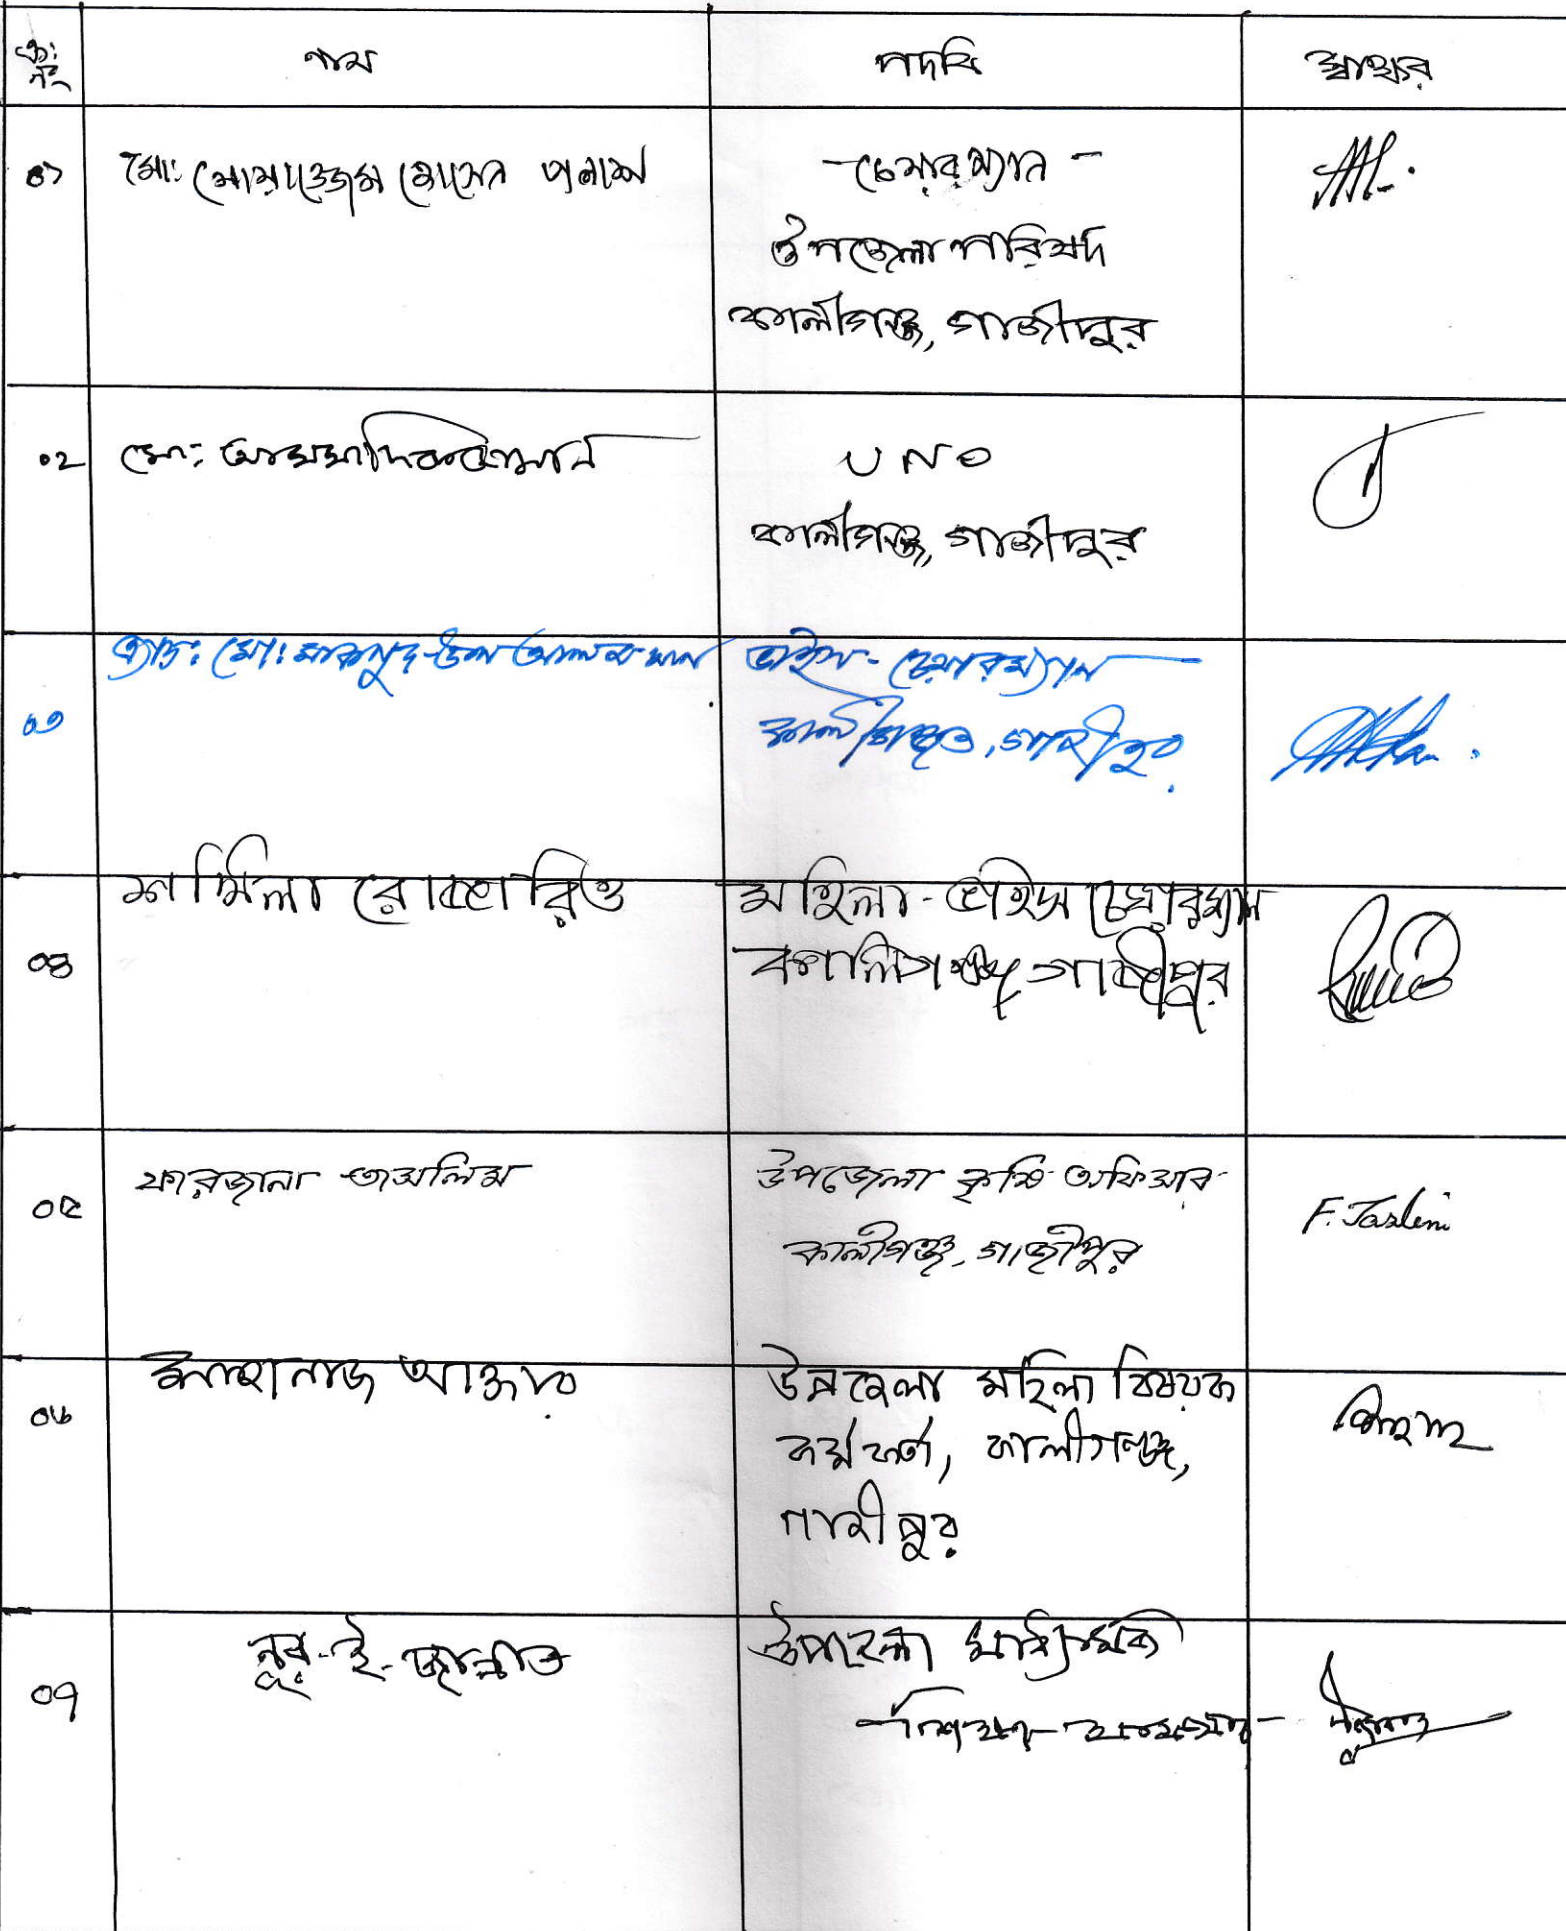 ক্রঃ নং নাম পদবি স্বাক্ষর
০১ মোঃ মোয়াজ্জেম হোসেন পলাশ -চেয়ারম্যান-
উপজেলা পরিষদ
কালীগঞ্জ, গাজীপুর
০২ মোঃ UNO
কালীগঞ্জ, গাজীপুর
০৩ মোঃ মাকসুদ-উল আলম খান ভাইস-চেয়ারম্যান
কালীগঞ্জ, গাজীপুর
০৪ শর্মিলা রোজারিও মহিলা-ভাইস চেয়ারম্যান
কালিগঞ্জ গাজীপুর
০৫ ফারজানা তাসলিম উপজেলা কৃষি অফিসার
কালীগঞ্জ, গাজীপুর F. Taslim
০৬ শাহানাজ আক্তার উপজেলা মহিলা বিষয়ক
কর্মকর্তা, কালীগঞ্জ,
গাজীপুর
০৭ নূর-ই-জান্নাত উপজেলা মাধ্যমিক
শিক্ষা